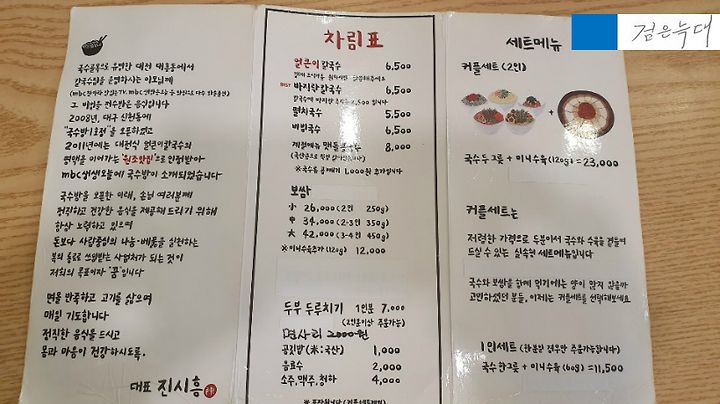 국수골목으로 유명한 대전 대흥동에서
칼국수집을 운영하시는 이모님께
그 비법을 전수받은 음식입니다
2008년, 대구 신천동에
"국수방1호점"을 오픈하였고
2011년에는 대전식 얼큰이칼국수의
면맥을 이어가는 "원조맛집"으로 인정받아
mbc생생오늘에 국수방이 소개되었습니다
국수방을 오픈한 이래, 손님 여러분께
정직하고 건강한 음식을 제공해 드리기 위해
항상 노력하고 있으며
돈보다 사람중심의 나눔·베품을 실현하는
부의 통로로 쓰임받는 사업처가 되는 것이
저희의 목표이자 "꿈"입니다
면을 반죽하고 고기를 삶으며
매일 기도합니다
정직한 음식을 드시고
몸과 마음이 건강하시도록.
대표 진시흥
차림표
얼큰이 칼국수 6,500
BEST 바지락칼국수 6,500
멸치국수 5,500
비빔국수 6,500
계절메뉴 맷돌콩국수 8,000
※국수류 곱빼기 1,000원 추가됩니다
보쌈
小 26,000 (2인 250g)
中 34,000 (2-3인 350g)
大 42,000 (3-4인 450g)
※미니수육추가 (120g) 12,000
두부 두루치기 1인분 7,000
(2인분이상 주문가능)
면사리 2000원
공깃밥 (米:국산) 1,000
음료수 2,000
소주,맥주,청하 4,000
세트메뉴
커플세트 (2인)
+
국수 두그릇 + 미니수육 (120g) = 23,000
커플세트는
저렴한 가격으로 두분이서 국수와 수육을 곁들여
드실 수 있는 실속형 세트메뉴입니다
국수와 보쌈을 함께 먹기에는 양이 많지 않을까
고민하셨던 분들, 이제는 커플세트를 선택해보세요
1인세트 (한분일 경우만 주문가능합니다)
국수 한그릇 + 미니수육 (60g) = 11,500
검은늑대